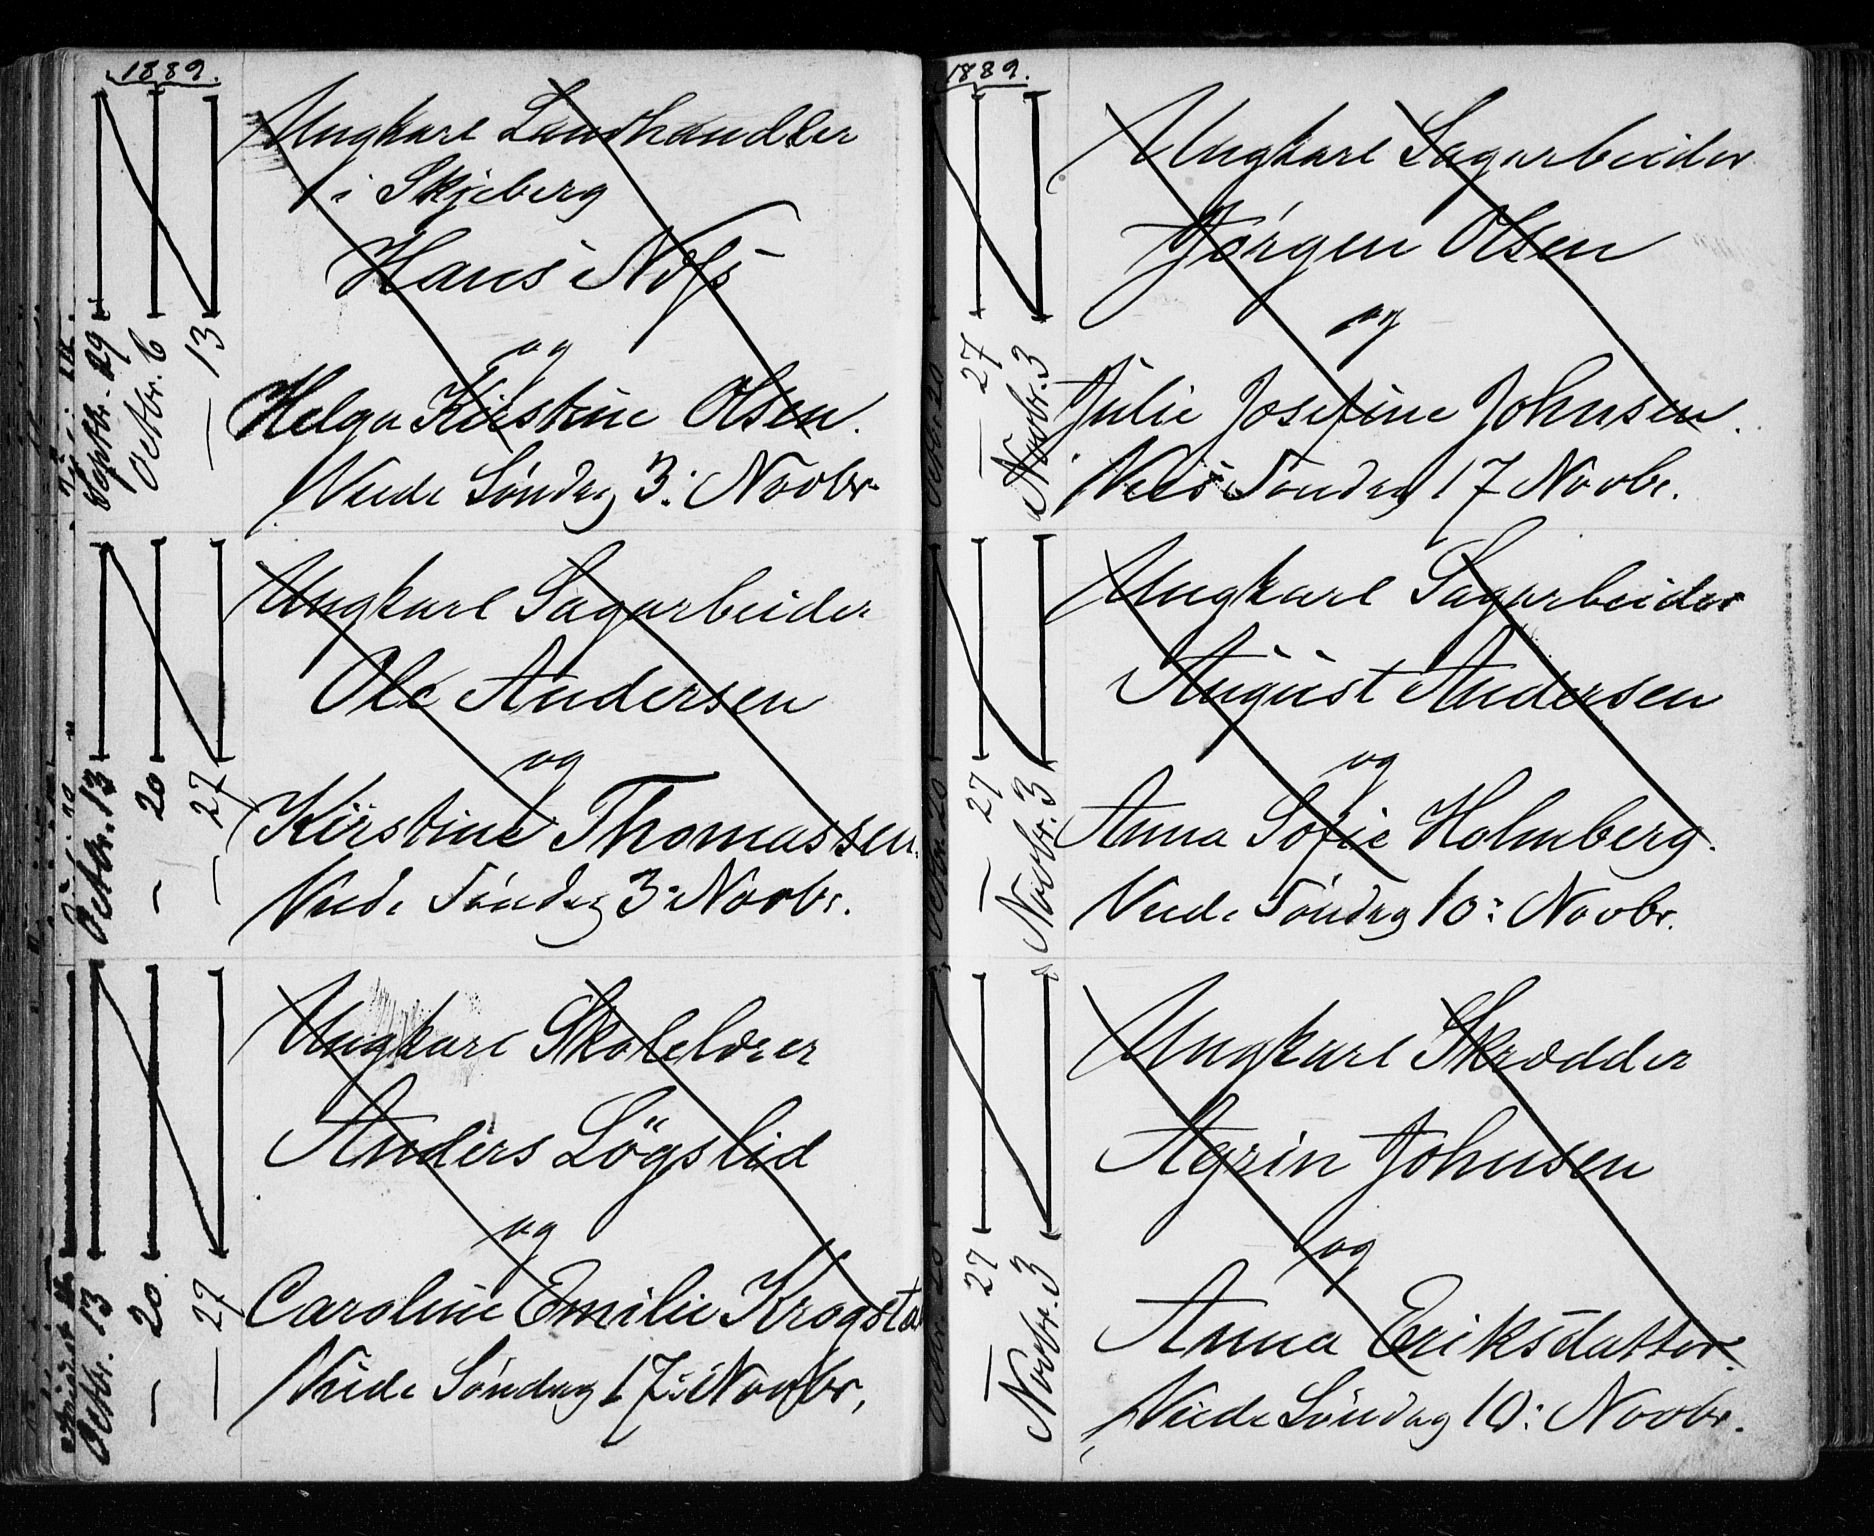 1889.
Ungkarl Landhandler
i Skjeberg
Hans Nøss
og
Helga Kirstine Olsen.
Viede Søndag 3: Novbr.
Septbr. 29
Octbr. 6
— 13
Ungkarl Sagarbeider
Ole Andersen
og
Kirstine Thomassen.
Viede Søndag 3: Novbr.
Octbr. 13
— 20
— 27
Ungkarl Skolelærer
Anders Lögslid
og
Caroline Emilie Krogsta
Viede Søndag 17: Novbr.
Octbr. 13
— 20
— 27
1889.
Ungkarl Sagarbeider
Jørgen Olsen
og
Julie Josefine Johnsen.
Viede Søndag 17 Novbr.
Octbr. 20
— 27
Novbr. 3
Ungkarl Sagarbeider
August Andersen
og
Anna Sofie Holmberg.
Viede Søndag 10: Novbr.
Octbr. 20
— 27
Novbr. 3
Ungkarl Skrædder
Agrin Johnsen
og
Anna Eriksdatter.
Viede Søndag 10: Novbr.
Octbr 20
— 27
Novbr. 3